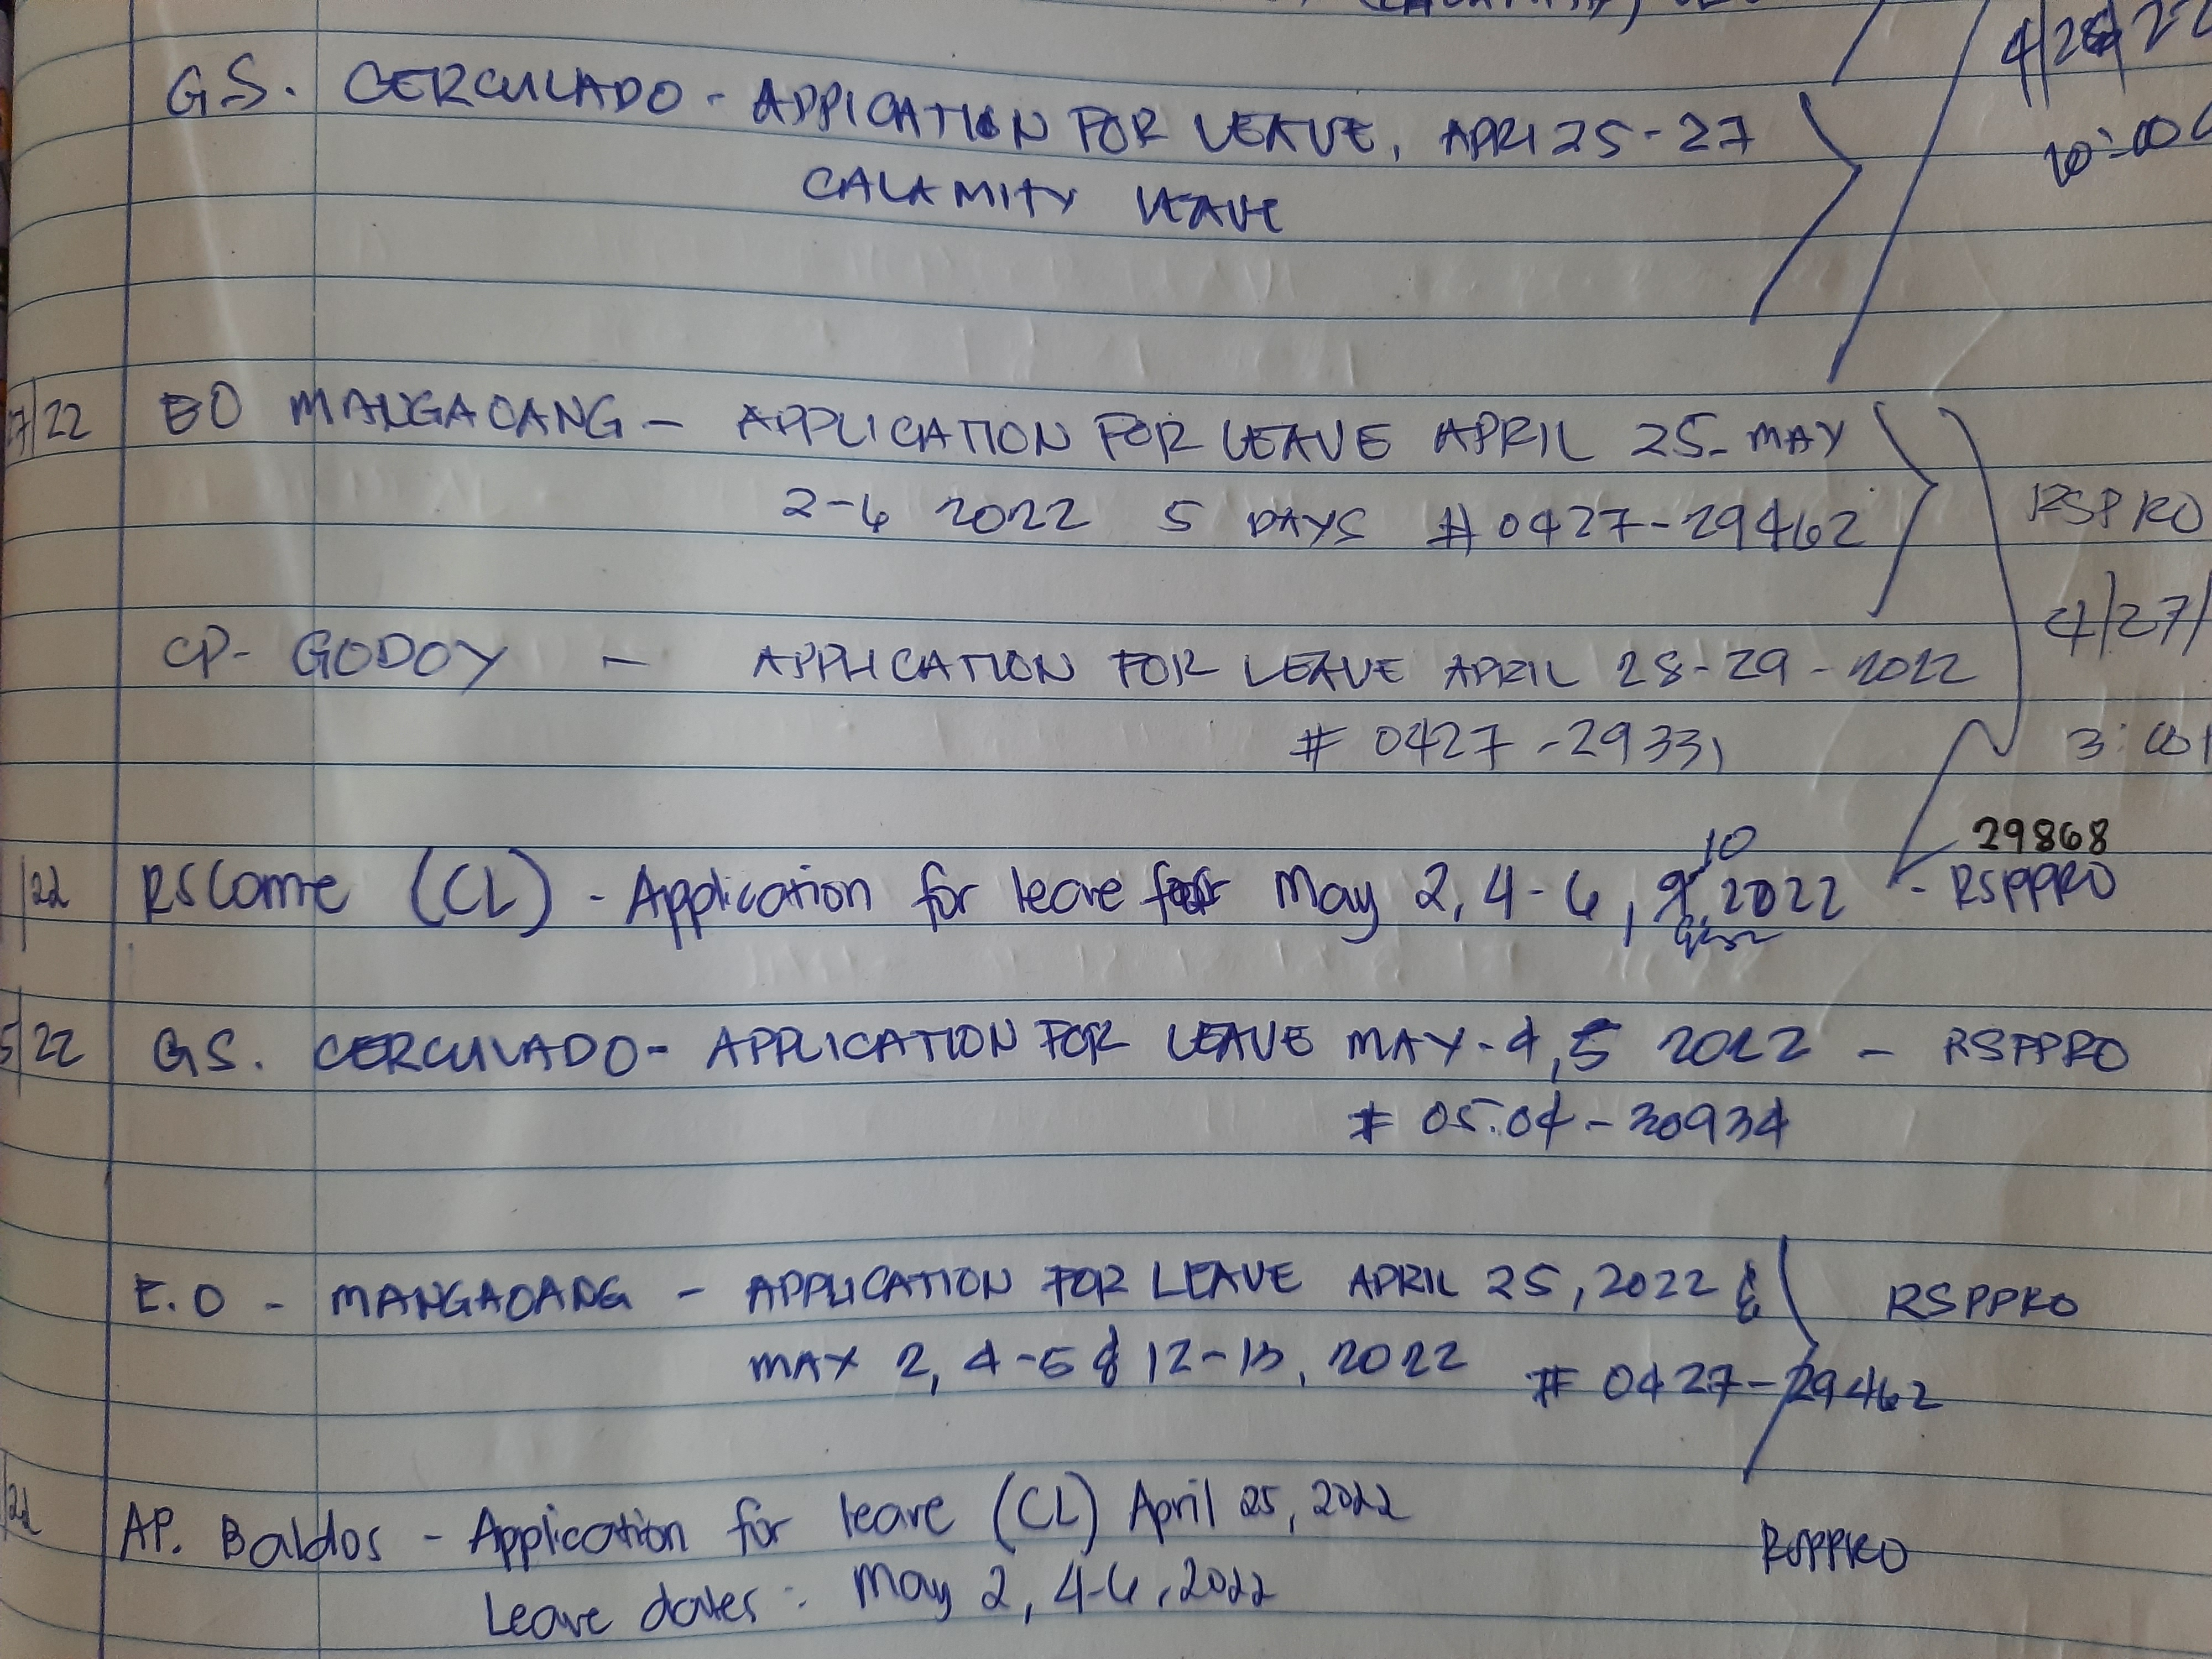 4/28/22
G.S. CERCULADO - APPICATION FOR LEAVE, APRI 25-27
10:00
CALAMITY LEAVE
7/22 EO MANGAOANG - APPLICATION FOR LEAVE APRIL 25- MAY
2-6 2022 5 DAYS # 0427-29462 RSPRO
4/27/
CP- GODOY - APPLICATION FOR LEAVE APRIL 28-29-2022
# 0427-29331 3:00
10 29868
/22 (CL) - Application for leave for May 2, 4-6, 9, 2022 - RSPPRO
5/22 GS. CERCULADO- APPLICATION FOR LEAVE MAY-4,5 2022 - RSPPRO
# 05.04-30934
E.O - MANGAOANG - APPLICATION FOR LEAVE APRIL 25, 2022 & RSPPRO
MAY 2, 4-5 & 12-13, 2022 # 0427-29462
/22 AP. Baldos - Application for leave (CL) April 25, 2022
RSPPRO
Leave dates: May 2, 4-6, 2022